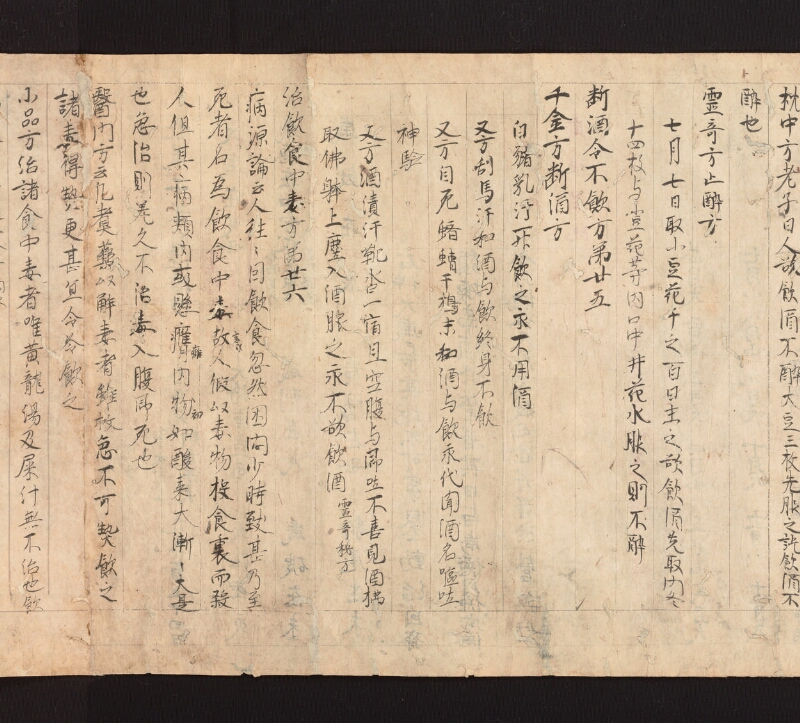 枕中方老子曰人欲飲酒不醉大豆三枚先服之訖飲酒不
醉也
霊奇方止醉方
七月七日取小豆花干之百日末之欲飲酒先取門冬
十四枚与小豆花等内口中井花水服之則不醉
断酒令不飲方第廿五
千金方断酒方
白猪乳汁一升飲之永不用酒
又方刮馬汗和酒与飲終身不飲
又方自死蠐螬干搗末和酒与飲永代聞酒名嘔吐
神驗
又方酒漬汗靴沓一宿旦空腹与即吐不喜見酒
取佛錍上塵入酒服之永不欲飲酒 霊奇秘方
治飲食中毒方第廿六
病源論云人往〻因飲食忽然困悶少時致甚乃至
死者名為飲食中毒言人假以毒物投食裏而殺
人但其病頰内或懸癰内物如酸棗大漸〻大是
也急治則差久不治毒入腹即死也
醫門方云凡煮藥以解毒者雖救急不可熱飲之
諸毒得熱更甚宜令冷飲之
小品方治諸食中毒者唯黄龍湯及屎汁無不治也飲